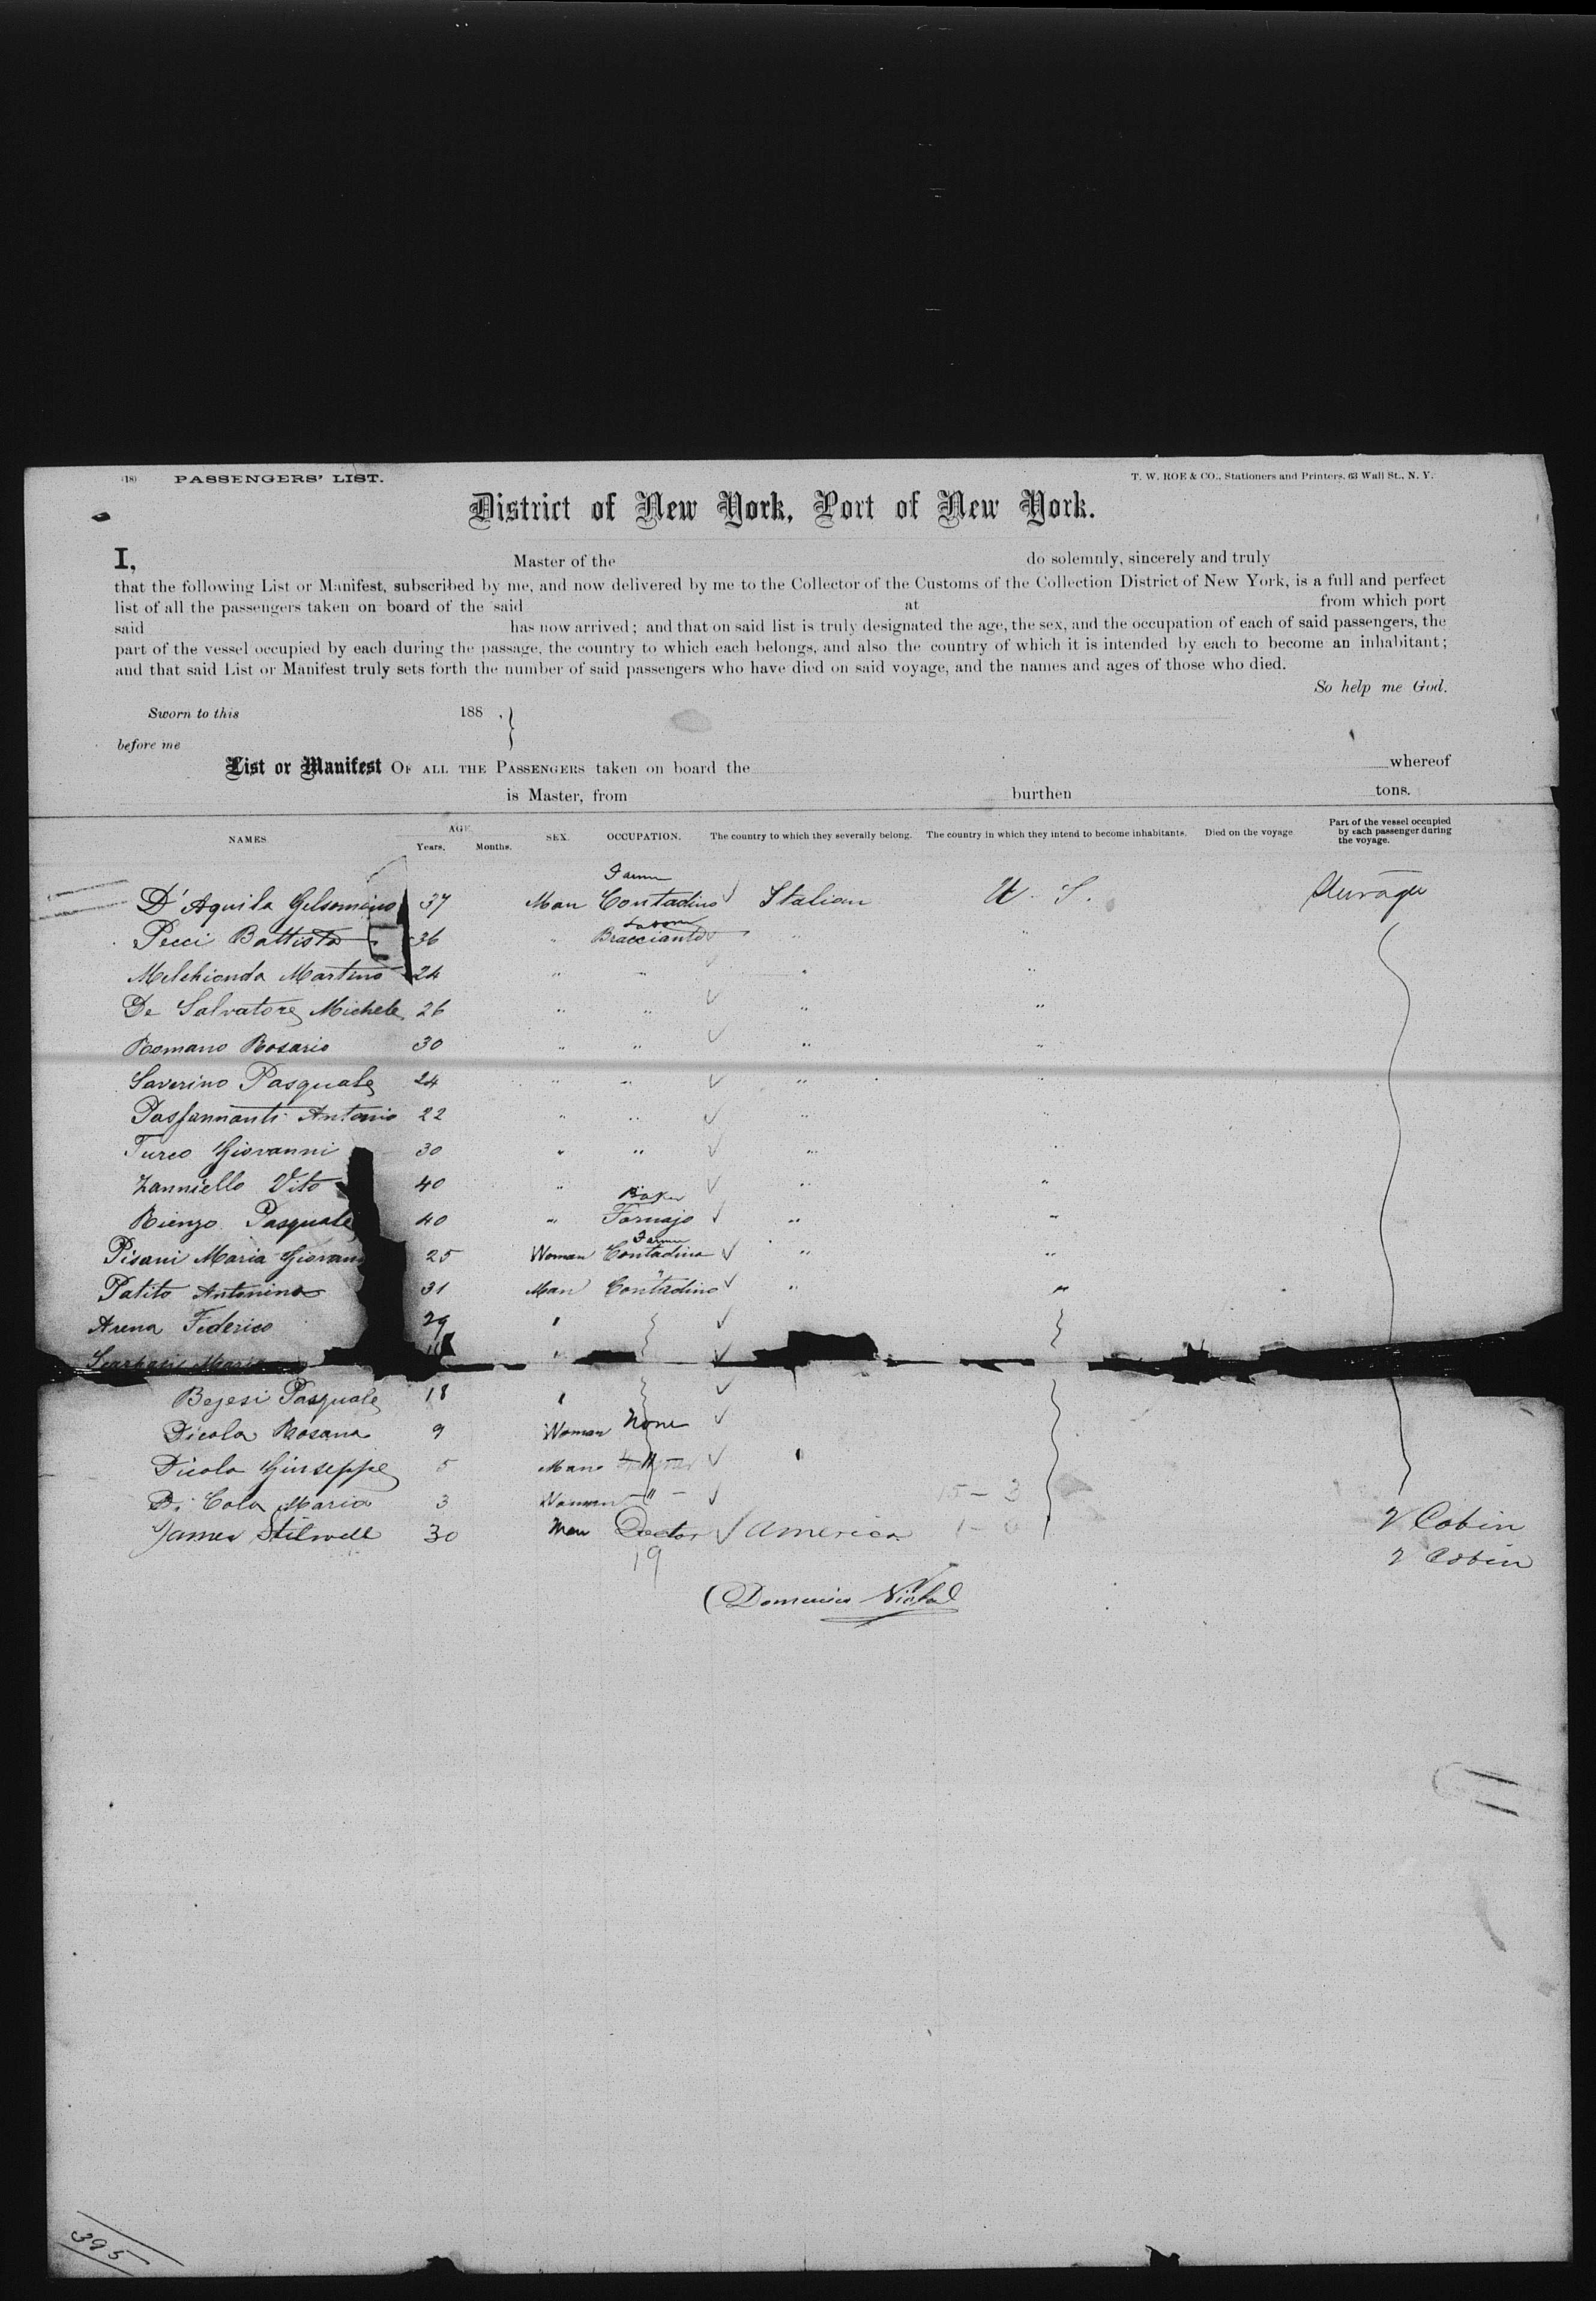 (18) PASSENGERS' LIST. T. W. ROE & CO., Stationers and Printers, 63 Wall St., N. Y.
District of New York, Port of New York.
I, Master of the do solemnly, sincerely and truly
that the following List or Manifest, subscribed by me, and now delivered by me to the Collector of the Customs of the Collection District of New York, is a full and perfect
list of all the passengers taken on board of the said at from which port
said has now arrived; and that on said list is truly designated the age, the sex, and the occupation of each of said passengers, the
part of the vessel occupied by each during the passage, the country to which each belongs, and also the country of which it is intended by each to become an inhabitant;
and that said List or Manifest truly sets forth the number of said passengers who have died on said voyage, and the names and ages of those who died.
So help me God.
Sworn to this 188 , }
before me
List or Manifest OF ALL THE PASSENGERS taken on board the whereof
is Master, from burthen tons.
NAMES AGE Years. Months. SEX. OCCUPATION. The country to which they severally belong. The country in which they intend to become inhabitants. Died on the voyage Part of the vessel occupied by each passenger during the voyage.
Farmer
D'Aquila Gelsomino 37 Man Contadino ✓ Italian U. S. Steerage
Labore
Pecci Battista 36 " Bracciante ✓ " "
Melchionda Martino 24 " " ✓ " "
De Salvatore Michele 26 " " ✓ " "
Romano Rosario 30 " " ✓ " "
Saverino Pasquale 24 " " ✓ " "
Passannanti Antonio 22 " " ✓ " "
Turco Giovanni 30 " " ✓ " "
Zanniello Vito 40 " ✓ " "
Baker
Rienzo Pasquale 40 " Fornajo ✓ " "
Farmer
Pisani Maria Giovann 25 Woman Contadina ✓ " "
Patito Antonino 31 Man Contadino ✓ " "
Arena Federico 29 " ✓
Maria ✓
Bejesi Pasquale 18 " ✓
Dicola Rosana 9 Woman None ✓
Dicola Giuseppe 5 Man " ✓
Di Cola Maria 3 Woman " ✓ 15 - 3
James Stilwell 30 Man Doctor ✓ America 1 - 0 2 Cabin
19 2 Cabin
(Domenico
395